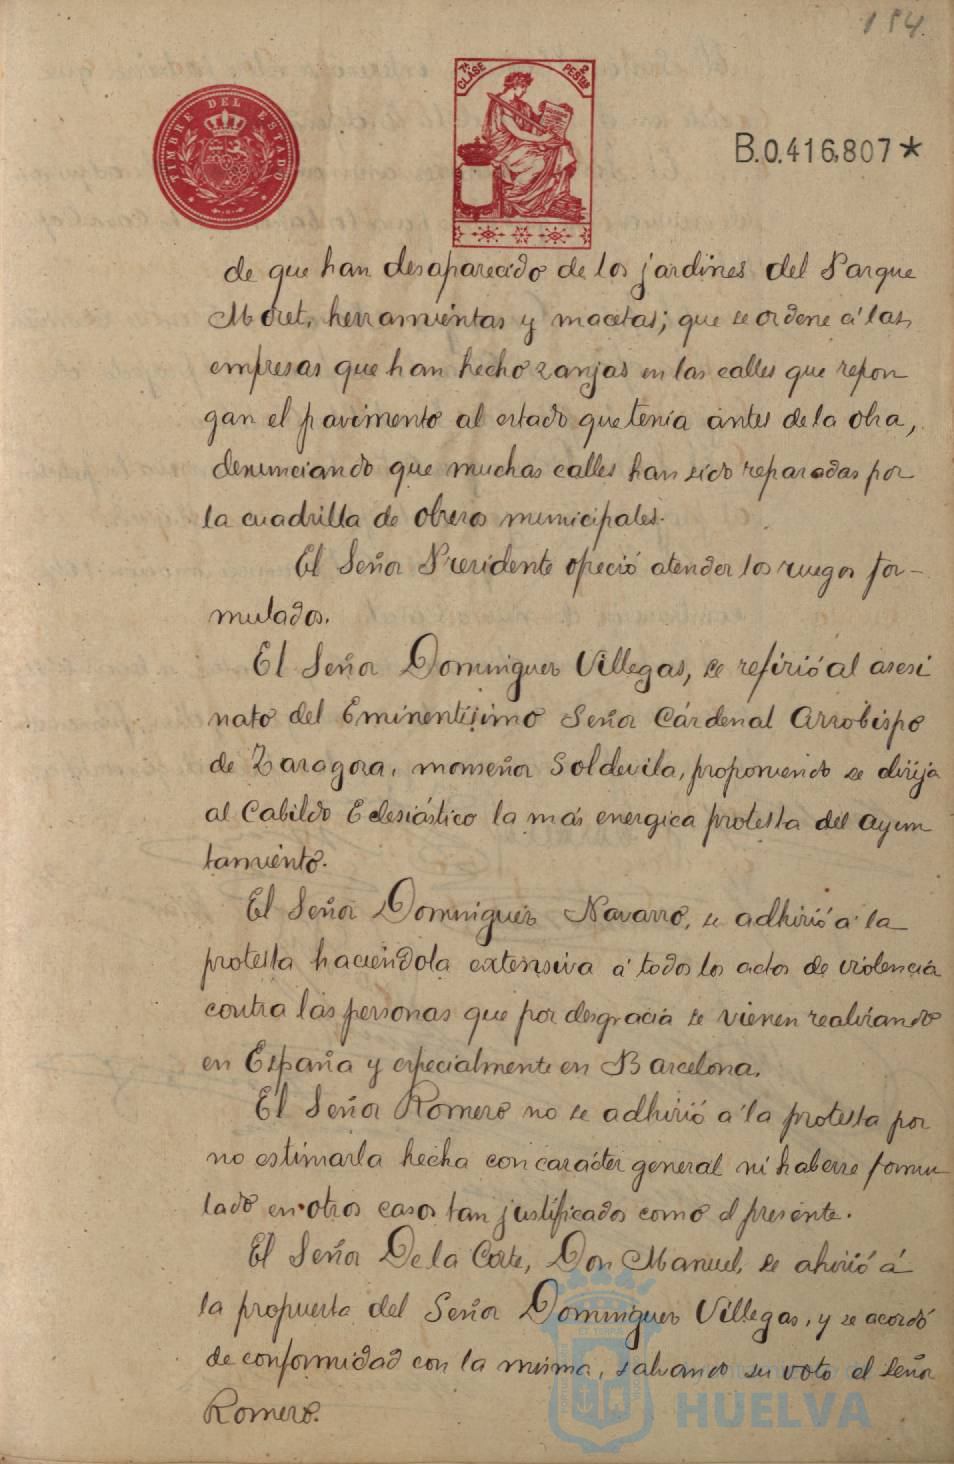 184.
TIMBRE DEL ESTADO
7ª CLASE
2 PESTAS
B.0.416,807*
de que han desaparecido de los jardines del Parque
Moret, herramientas y macetas; que se ordene á las
empresas que han hecho zanjas en las calles que repon
gan el pavimento al estado que tenía antes de la obra,
denunciando que muchas calles han sido reparadas por
la cuadrilla de obreros municipales.
El Señor Presidente opeció atender los ruegos for-
mulados.
El Señor Dominguez Villegas, se refirió al asesi
nato del Eminentísimo Señor Cárdenal Arzobispo
de Zaragoza, monseñor Soldevila, proponiendo se dirija
al Cabildo Eclesiástico la más energica protesta del Ayun
tamiento.
El Señor Dominguez Navarro, se adhirió á la
protesta haciéndola extensiva á todos los actos de violencia
contra las personas que por desgracia se vienen realizando
en España y especialmente en Barcelona.
El Señor Romero no se adhirió á la protesta por
no estimarla hecha con carácter general ni haberse formu
lado en otros casos tan justificados como el presente.
El Señor De la Corte, Don Manuel, se ahirió á
la propuesta del Señor Dominguez Villegas, y se acordó
de conformidad con la misma, salvando su voto el Señor
Romero.
HUELVA